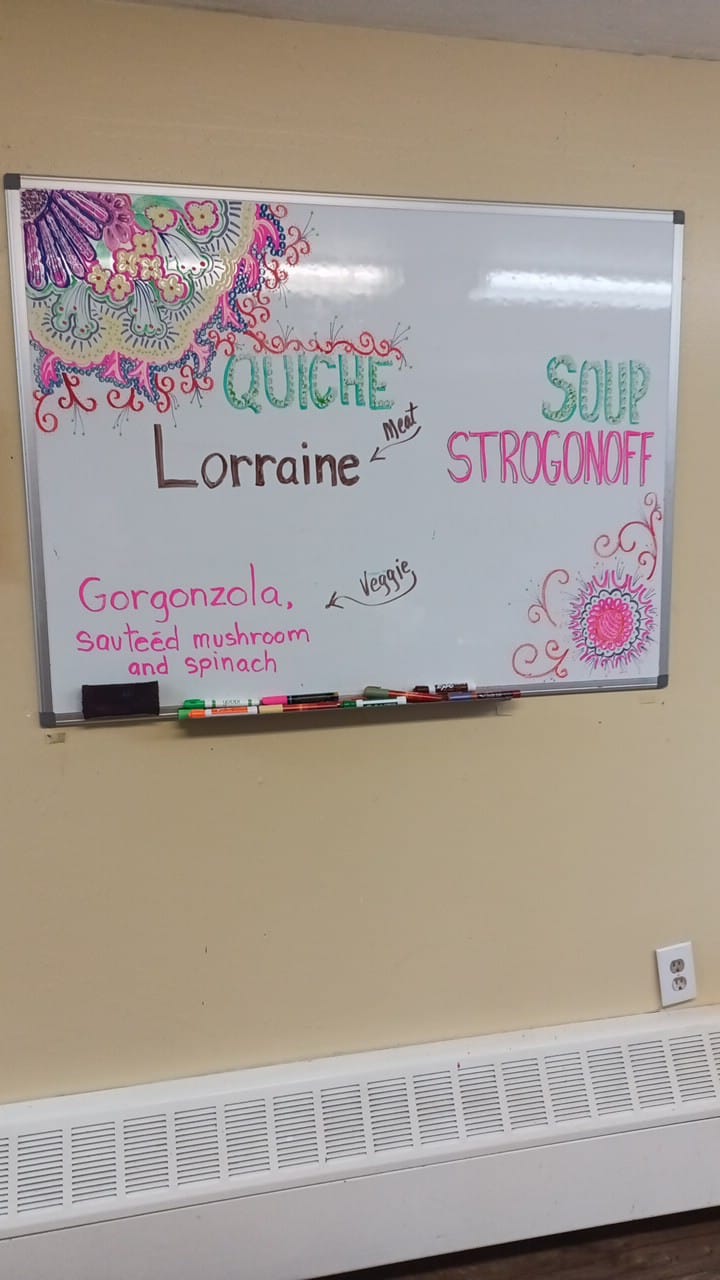 QUICHE
Meat
Lorraine
Veggie
Gorgonzola,
sauteéd mushroom
and spinach
SOUP
STROGONOFF